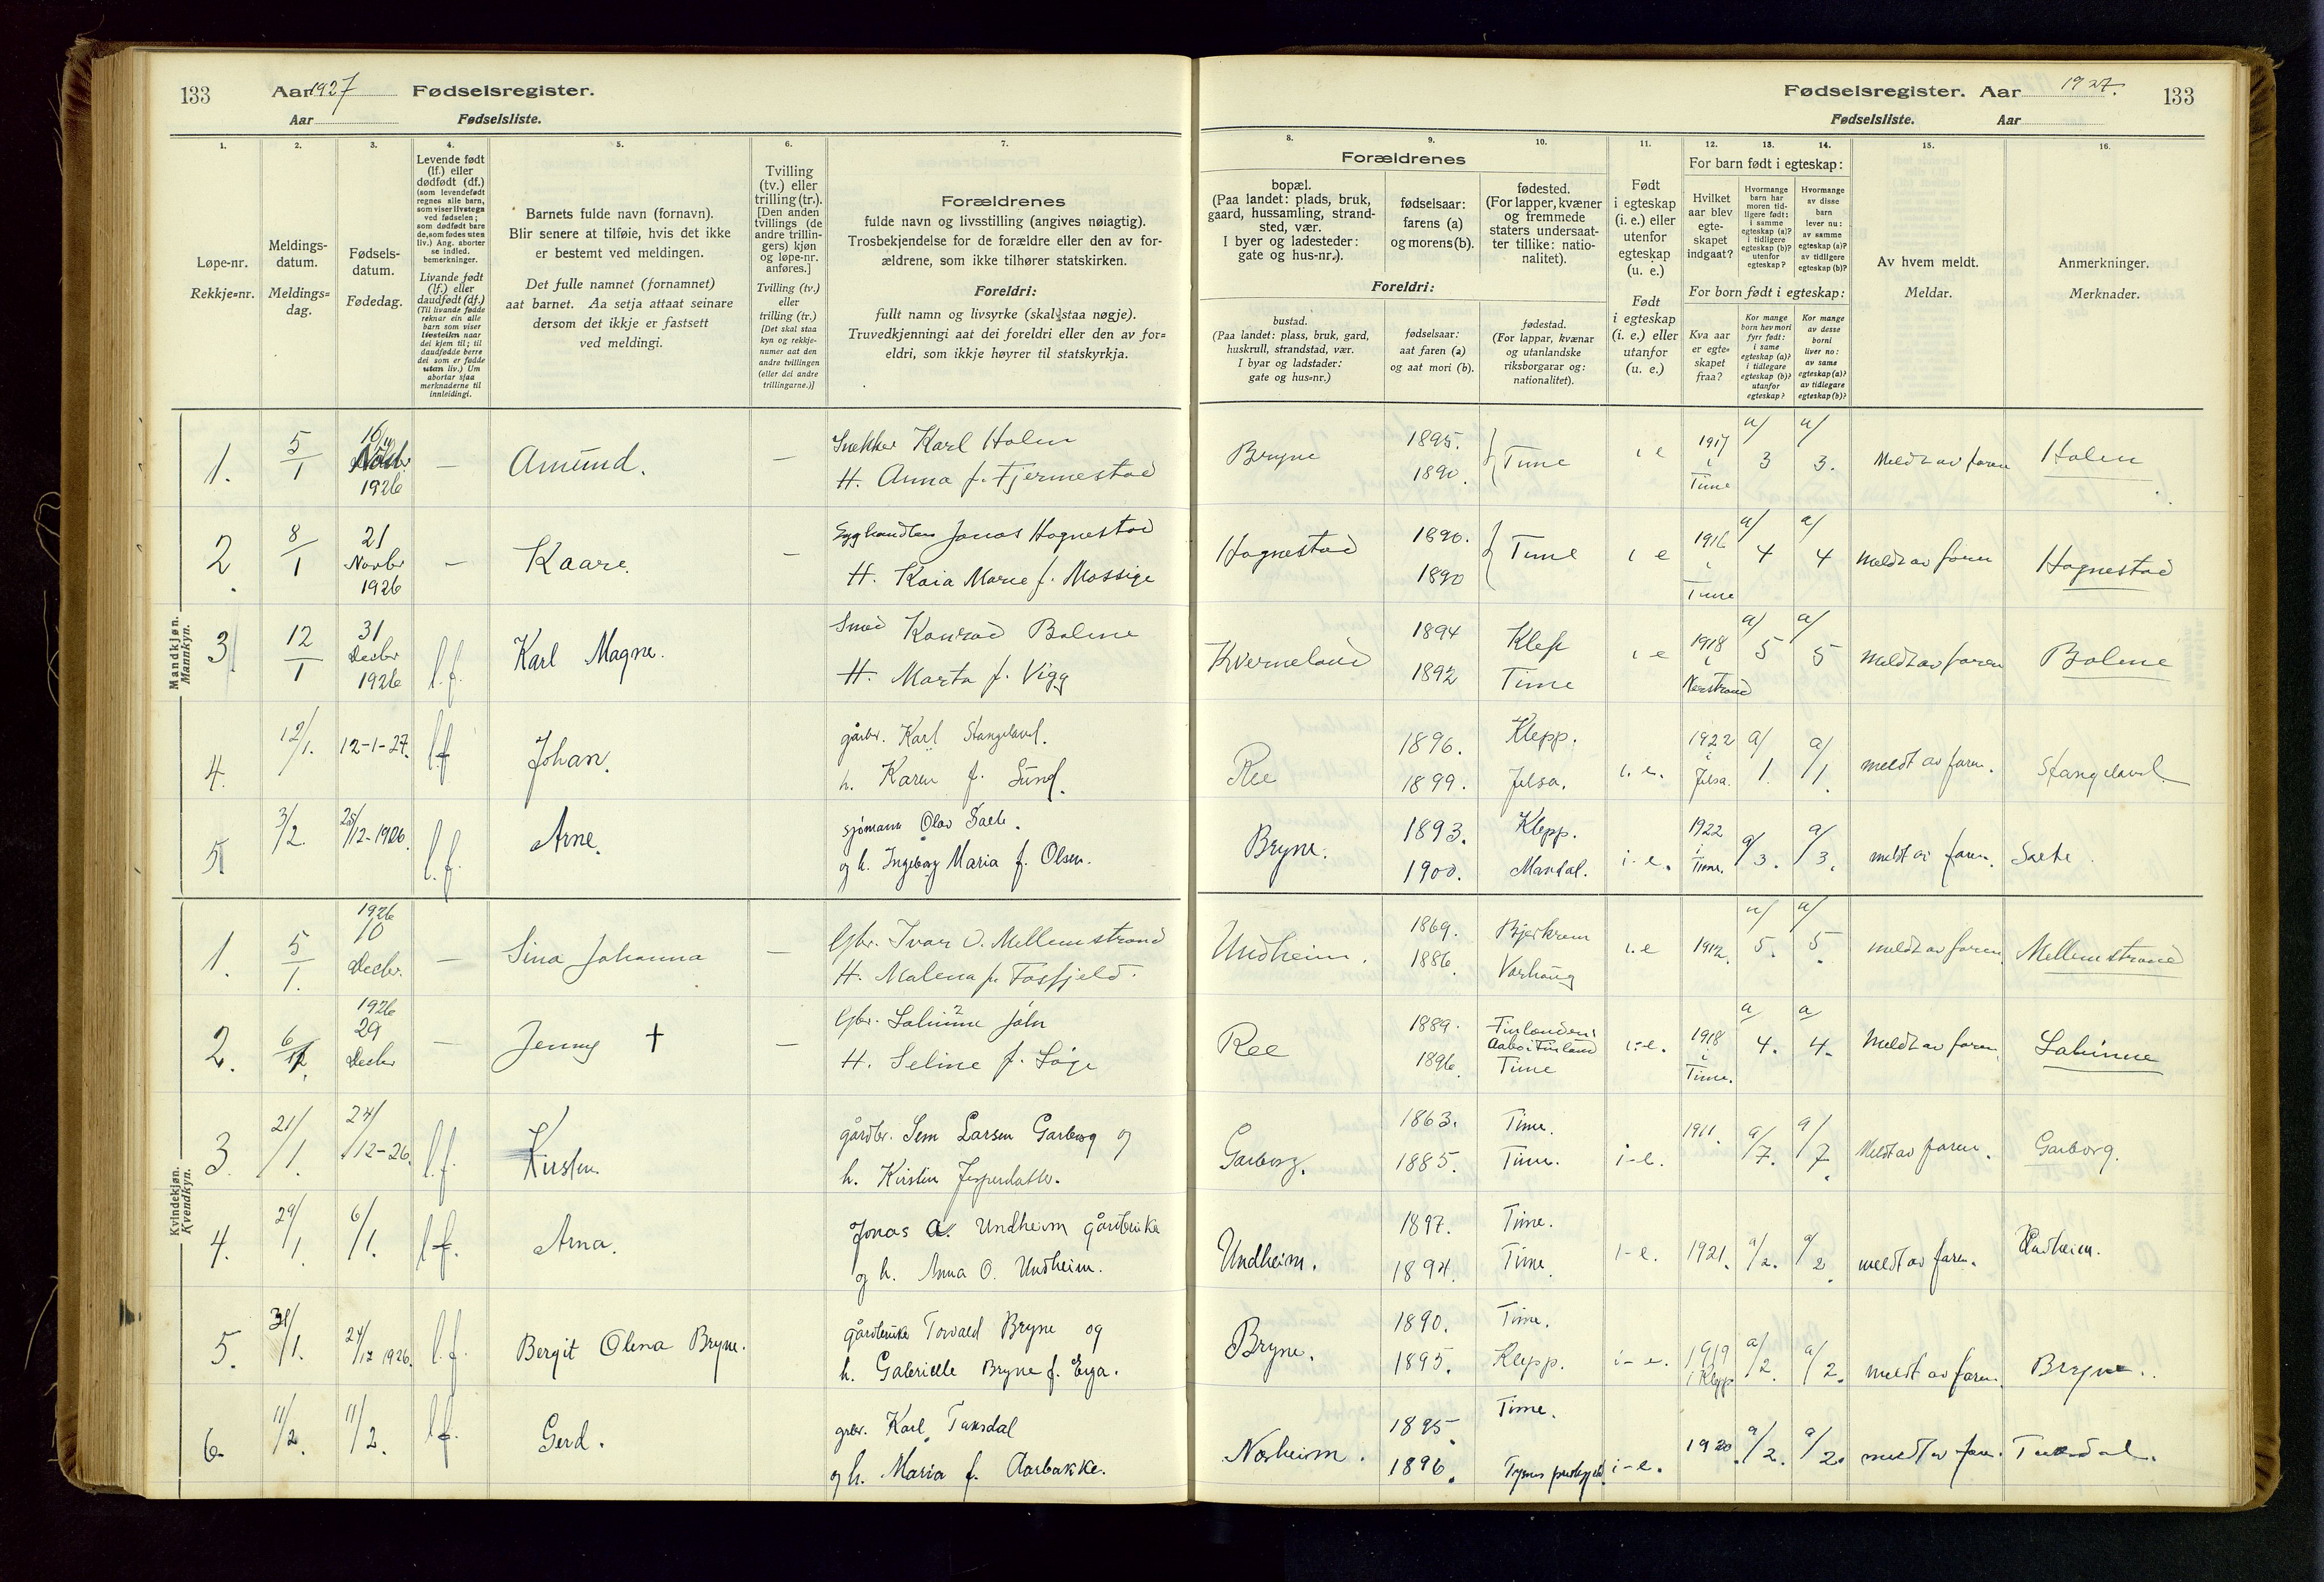 133 Aar 1927 Fødselsregister.
Aar Fødselsliste.
Fødselsregister. Aar 1927. 133
Fødselsliste. Aar
1. 2. 3. 4. 5. 6. 7.
Løpe-nr.
Rekkje=nr.
Meldings-
datum.
Meldings=
dag.
Fødsels-
datum.
Fødedag.
Levende født
(lf.) eller
dødfødt (df.)
(som levendefødt
regnes alle barn,
som viser livstegn
ved fødselen;
som dødfødt bare
de, som fødes uten
liv.) Ang. aborter
se indled.
bemerkninger.
Livande født
(lf.) eller
daudfødt (df.)
(Til livande fødde
reknar ein alle
barn som viser
livsteikn naar
dei kjem til; til
daudfødde berre
dei som er fødde
utan liv.) Um
abortar sjaa
merknaderne til
innleidingi.
Barnets fulde navn (fornavn).
Blir senere at tilføie, hvis det ikke
er bestemt ved meldingen.
Det fulle namnet (fornamnet)
aat barnet. Aa setja attaat seinare
dersom det ikkje er fastsett
ved meldingi.
Tvilling
(tv.) eller
trilling (tr.).
[Den anden
tvillings (de
andre trillin-
gers) kjøn
og løpe-nr.
anføres.]
Tvilling (tv.)
eller
trilling (tr.)
[Det skal staa
kyn og rekkje-
numer aat den
andre tvillingen
(eller dei andre
trillingarne.)]
Forældrenes
fulde navn og livsstilling (angives nøiagtig).
Trosbekjendelse for de forældre eller den av for-
ældrene, som ikke tilhører statskirken.
Foreldri:
fullt namn og livsyrke (skal staa nøgje).
Truvedkjenningi aat dei foreldri eller den av for=
eldri, som ikkje høyrer til statskyrkja.
8. 9. 10. 11. 12. 13. 14. 15. 16.
Forældrenes
bopæl.
(Paa landet: plads, bruk,
gaard, hussamling, strand-
sted, vær.
I byer og ladesteder:
gate og hus-nr.).
fødselsaar:
farens (a)
og morens (b).
fødested.
(For lapper, kvæner
og fremmede
staters undersaat-
ter tillike: natio-
nalitet).
Foreldri:
bustad.
(Paa landet: plass, bruk, gard,
huskrull, strandstad, vær.
I byar og ladstader:
gate og hus=nr.)
fødselsaar:
aat faren (a)
og aat mori (b).
fødestad.
(For lappar, kvænar
og utanlandske
riksborgarar og:
nationalitet).
Født
i egteskap
(i. e.) eller
utenfor
egteskap
(u. e.)
Født
i egteskap
(i. e.) eller
utanfor
(u. e.)
For barn født i egteskap:
Hvilket
aar blev
egte-
skapet
indgaat?
Hvormange
barn har
moren tid-
ligere født:
i samme
egteskap (a)?
i tidligere
egteskap (b)?
utenfor
egteskap?
Hvormange
av disse
barn
lever nu:
av samme
egteskap (a)?
av tidligere
egteskap (b)?
For born født i egteskap:
Kva aar
er egte=
skapet
fraa?
Kor mange
born hev mori
fyrr født:
i same
egteskap (a)?
i tidlegare
egteskap (b)?
utanfor
egteskap?
Kor mange
av desse
borni
liver no:
av same
egteskap (a)?
av tidlegare
egteskap (b)?
Av hvem meldt.
Meldar.
Anmerkninger.
Merknader.
Mandkjøn.
Mannkyn.
1. 5/1 1926 — Amund. — Snekker Karl Holen
H. Anna f. Fjermestad
Bryne 1895. 1890. Time i e 1917 i Time a/ 3 a/ 3. Meldt av faren Holen
2. 8/1 21 Novbr 1926 — Kaare. — Jonas Hognestad
H. Kaia Marie f. Mossige
Hognestad 1890. 1890 Time i e 1916 i Time a/ 4 a/ 4 Meldt av faren Hognestad
3 12/1 31 Decbr 1926 l.f. Karl Magne. Smed Konrad Bolme
H. Marta f. Vigg
Kverneland 1894 1892 Klep Time i e 1918 i Nerstrand a/ 5 a/ 5 Meldt av faren Bolme
4. 12/1. 12-1-27. l.f. Johan. gårbr. Karl Stangeland.
h. Karen f. Sund.
Ree 1896. 1899. Klepp. Jelsa. i. e. 1922 i Jelsa. a/ 1. a/ 1. meldt av faren. Stangeland.
5 3/2. 25/12-1926. l.f. Arne. sjømann Olav Sæle.
og h. Ingeborg Maria f. Olsen.
Bryne. 1893. 1900. Klepp. Mandal. i-e. 1922 i Time. a/3. a/3. meldt av faren. Sæle.
Kvindekjøn.
Kvendkyn.
1. 5/1. 1926 10 Decbr. — Sina Johanna — Gbr. Ivar O. Mellemstrand
H. Malena f. Fosfjeld.
Undheim. 1869. 1886. Bjerkrem Varhaug i.e 1912. a/ 5. a/ 5. meldt av faren. Mellemstrand
2. 6/1. 1926 29 Decbr — Jenny † — Gbr. John
H. Seline f. Søye
Ree 1889. 1896. Finlender Aabo i Finland Time i.-e. 1918 i Time. a/ 4. a/ 4. Meldt av faren.
3. 21/1. 24/12-26. l.f. Kirsten gårdbr. Sem Larsen Garborg og
h. Kirsten Jesperdatter.
Garborg. 1863. 1885. Time. Time. i-e. 1911. a/7. a/7. Meldt av faren. Garborg.
4. 29/1. 6/1. l.f. Arna. Jonas A. Undheim gårdbruke
og h. Anna O. Undheim.
Undheim. 1897. 1894. Time. Time. i-e. 1921. a/2. a/2. meldt av faren. Undheim.
5. 31/1. 24/12 1926. l.f. Bergit Olena Bryne. gårdbruke Torvald Bryne og
h. Gabrielle Bryne f. Erga.
Bryne. 1890. 1895. Time. Klepp. i-e. 1919 i Klepp a/2. a/2. meldt av faren. Bryne.
6. 11/2. 11/2. l.f. Gerd. grbr. Karl Tunsdal
og h. Maria f. Aarbakke.
Norheim. 1895. 1896. Time. Tysnes i-e. 1920. a/2. a/2. meldt av faren. Tunsdal.